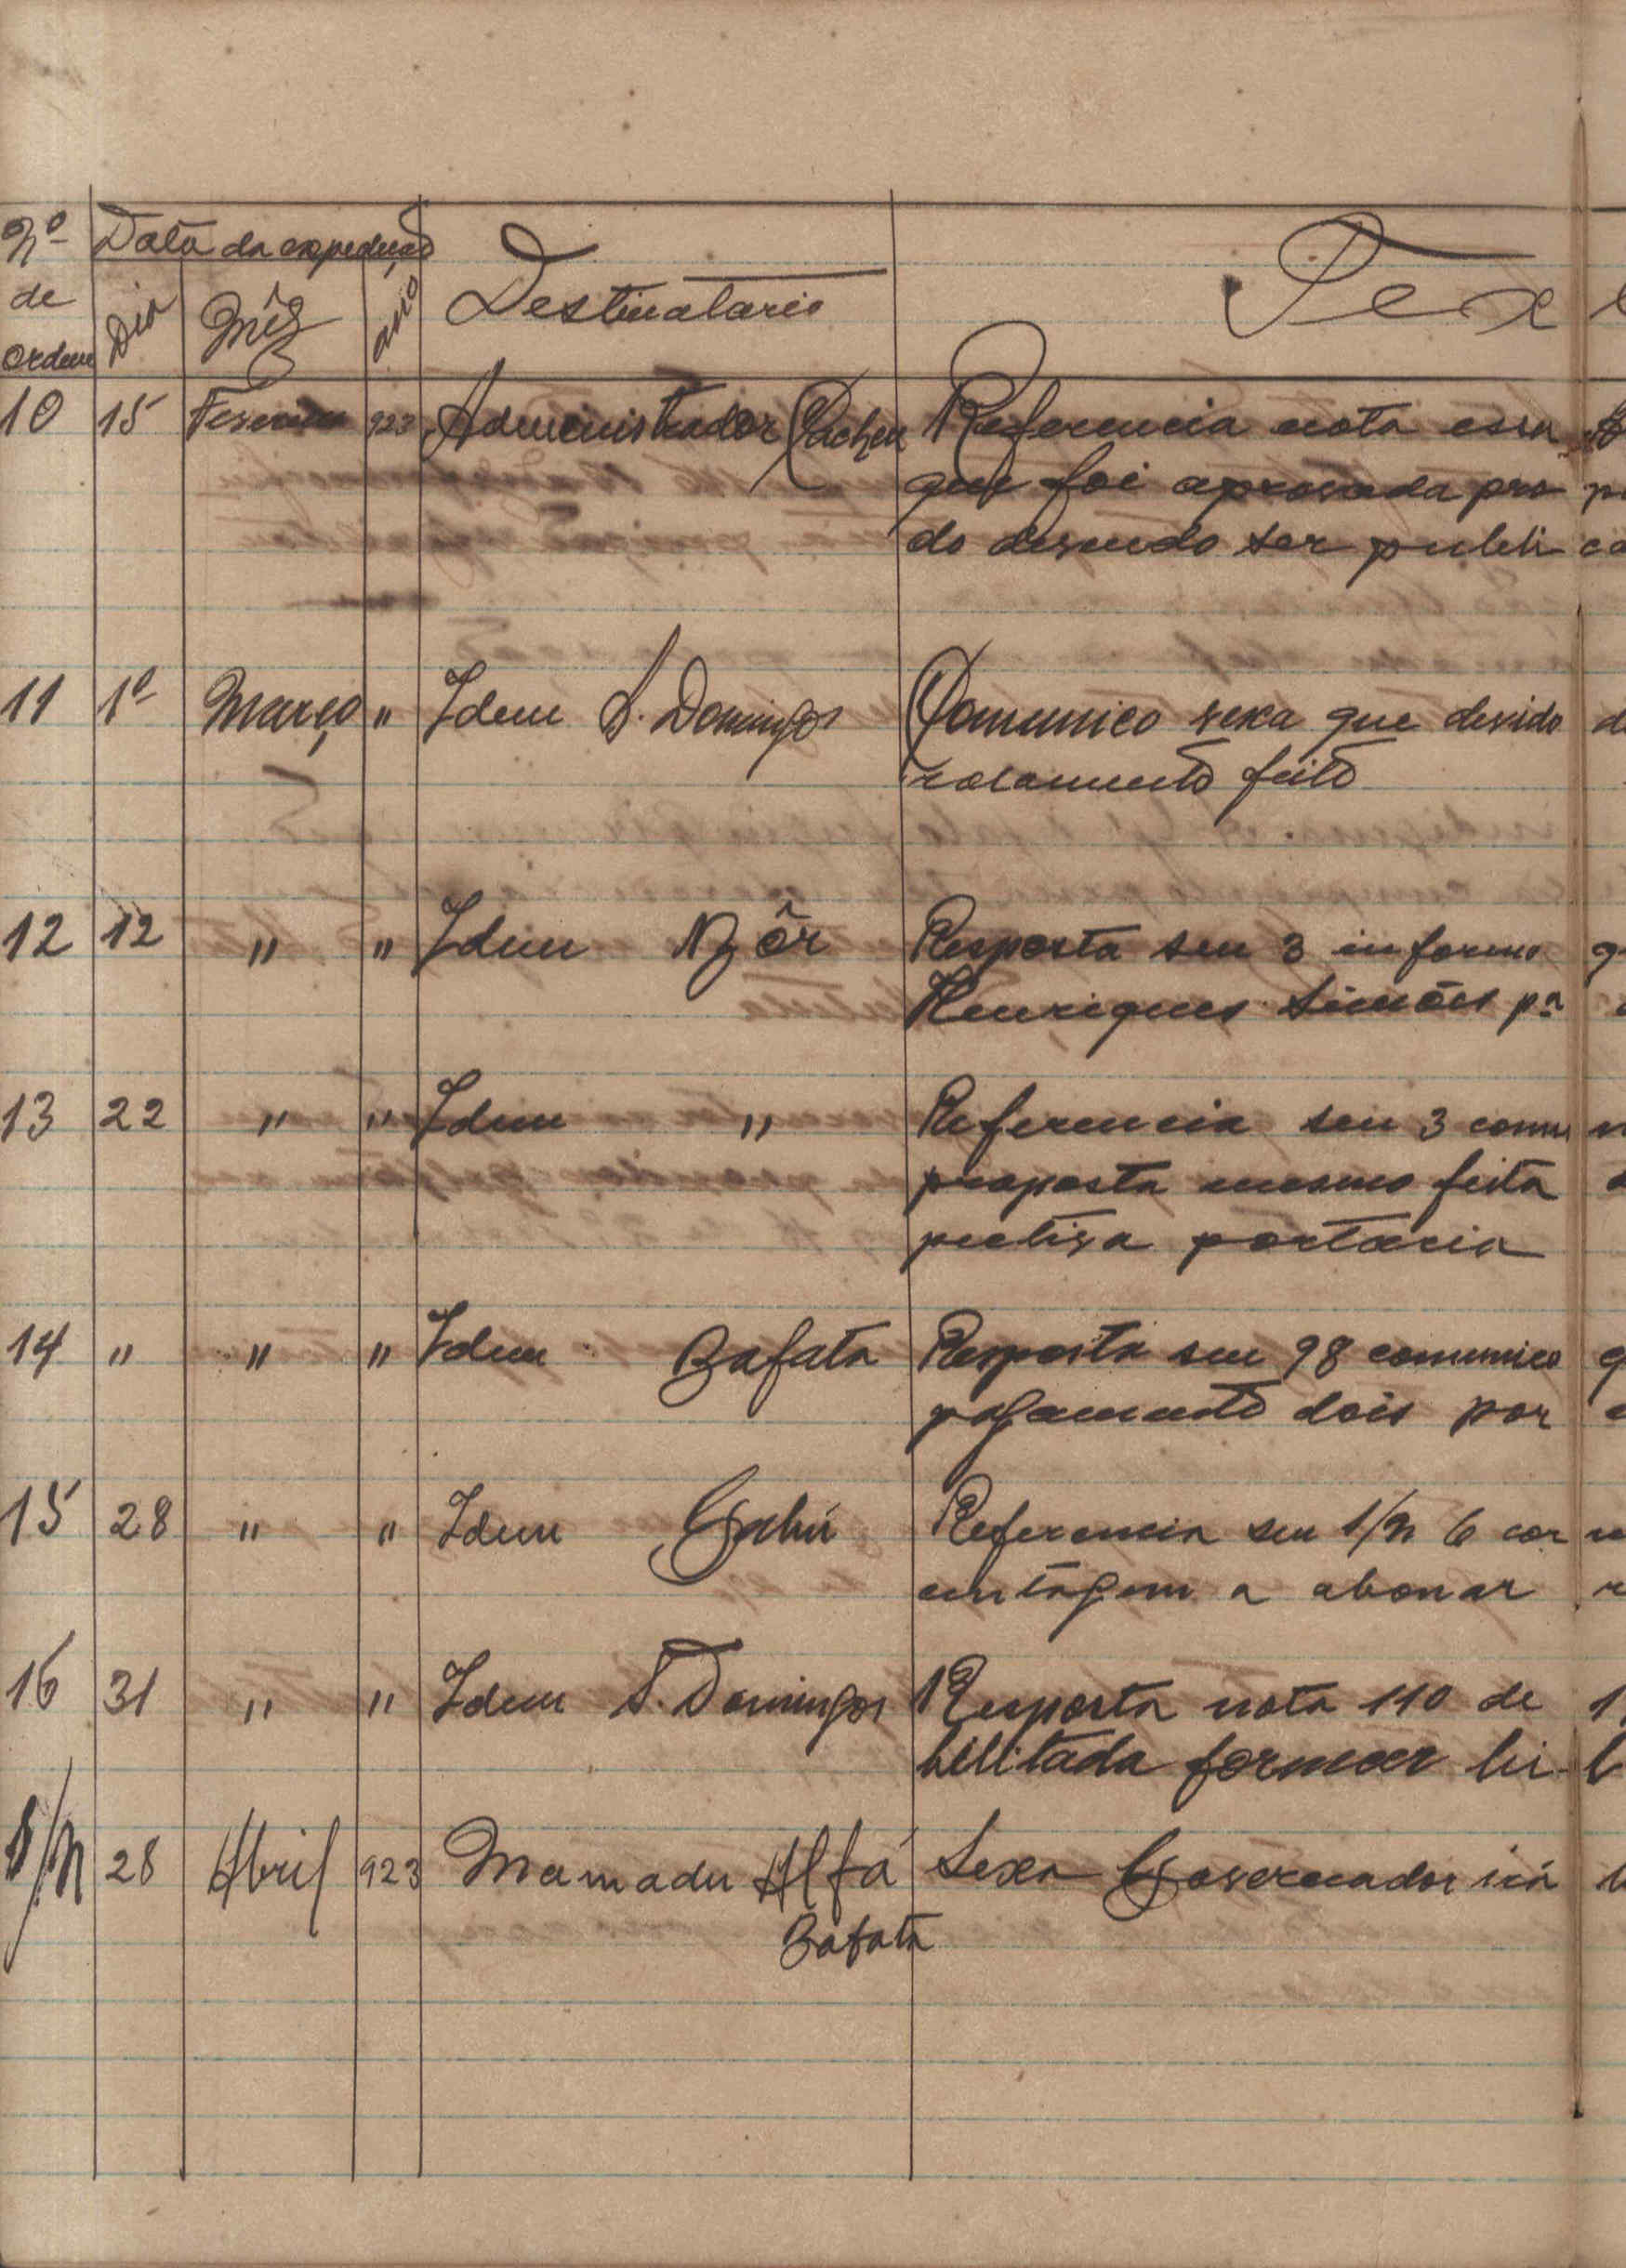 Nº de ordem Data da expedição Destinatario Tex
Dia Mês ano
10 15 Fevereiro 923 Administrador Cacheu Referencia nota essa
que foi aprovada pro
do devendo ser publi ca
11 1º Março " Idem S. Domingos Comunico sexa que devido
rolamento feito
12 12 " " Idem Bôr Resposta seu 3 informo
Henriques Simões pª
13 22 " " Idem " Referencia seu 3 comu
proposta mesmo feita
portaria
14 " " " Idem Bafata Resposta seu 98 comunico
pagamento dois por
15 28 " " Idem Gabú Referencia seu s/n 6
a abonar
16 31 " " Idem S. Domingos Resposta nota 110 de 1
bilitada formar bi
S/N 28 Abril 923 Mamadu Alfá Sexa Governador
Bafata